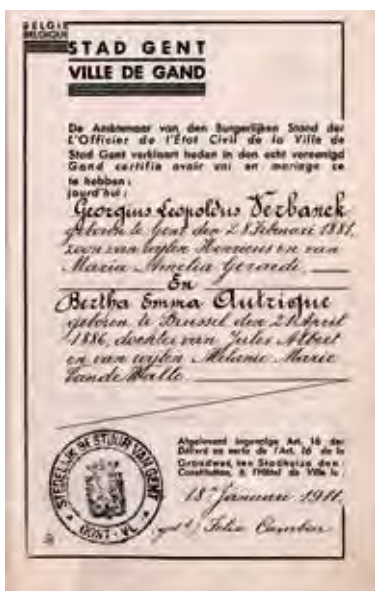 BELGIE
BELGIQUE
STAD GENT
VILLE DE GAND
De Ambtenaar van den Burgerlijken Stand der
L'Officier de l'État Civil de la Ville de
Stad Gent verklaart heden in den echt vereenigd
Gand certifie avoir uni en mariage ce
te hebben:
jourd'hui:
Georgius Leopoldus Verbanck
geboren te Gent den 28 Februari 1881,
zoon van wijlen Henricus en van
Maria Amelia
En
Bertha Emma Autrique
geboren te Brussel den 21 April
1886, dochter van Jules Albert
en van wijlen Melanie Marie
Vande Walle.
Afgeleverd ingevolge Art. 16 der
Délivré en vertu de l'Art. 16 de la
Grondwet, ten Stadhuize den
Constitution, à l'Hôtel de Ville le
18n Januari 1911.
STEDELIJK BESTUUR VAN GENT
OOST-VL.